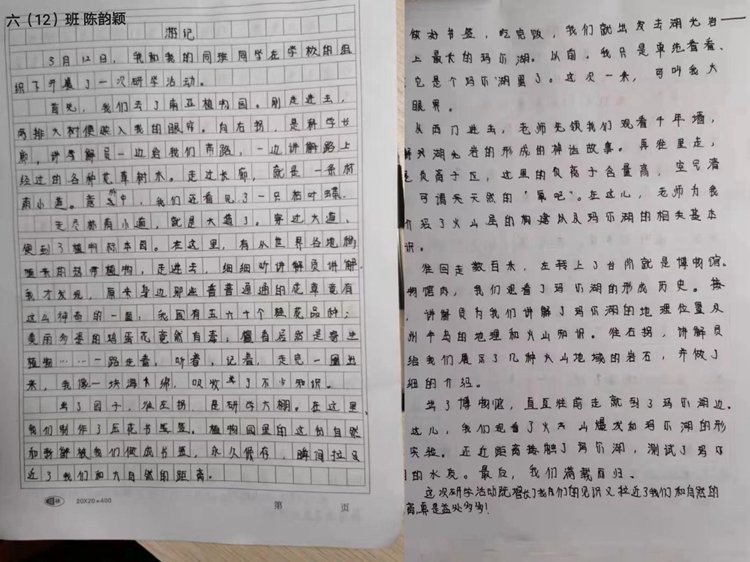 六（12）班 陈韵颖
游记
3月12日，我和我的同班同学在学校的组
织下开展了一次研学活动。
首先，我们去了南亚植物园。刚走进去，
两排大树便映入我的眼帘。向右拐，是科学长
廊。讲解员一边给我们带路，一边讲解路上
经过的各种花草树木。走过长廊，就是一条雨
林小道。我们还看见了一只枯叶蝶。
走尽林荫小道，就是大道了。穿过大道，
便到了植物标本园。在这里，有从世界各地搜
来的热带植物，走进去，细细听讲解员讲解
我才发现，原来身边那些普普通通的花草竟有
这么神奇的一面：我国有五六十个桃花品种；
美丽多姿的鸡蛋花竟然有毒；居然是寄生
植物……一路走着，听着，记着，走完一圈出
来，我像一块海绵，吸收了不少知识。
出了园子，往左拐，是研学大棚。在这里，
我们制作了压花书签。植物园里的这份自然
和新鲜被我们做成书签，永久保存，瞬间拉
近了我们和大自然的距离。
20X20=400
第 页
做好书签，吃完饭，我们就出发去湖光岩
上最大的玛珥湖。从前，我只是单纯看看，
它是个玛珥湖罢了。这次一来，可叫我大
眼界。
从西门进去，老师先领我们观看千年墙，
解说湖光岩的形成的神话故事。再往里走，
是负离子区，这里的负离子含量高，空气清
可谓是天然的“氧吧”。在这儿，老师为我
介绍了火山岩的构建以及玛珥湖的相关基本
识。
往回走数百米，左转上了台阶就是博物馆。
物馆内，我们观看了玛珥湖的形成历史。接
，讲解员为我们讲解了玛珥湖的地理位置及
州半岛的地理和火山知识。往右拐，讲解员
给我们展示了几种火山地域的岩石，并做了
细的介绍。
出了博物馆，直直往前走就到了玛珥湖边。
这儿，我们观看了火山爆发和玛珥湖的形
实验。还近距离接触了玛珥湖，测试了玛珥
的水质。最后，我们满载而归。
这次研学活动既增长了我们的见识又拉近了我们和自然的
离，真是益处多多！